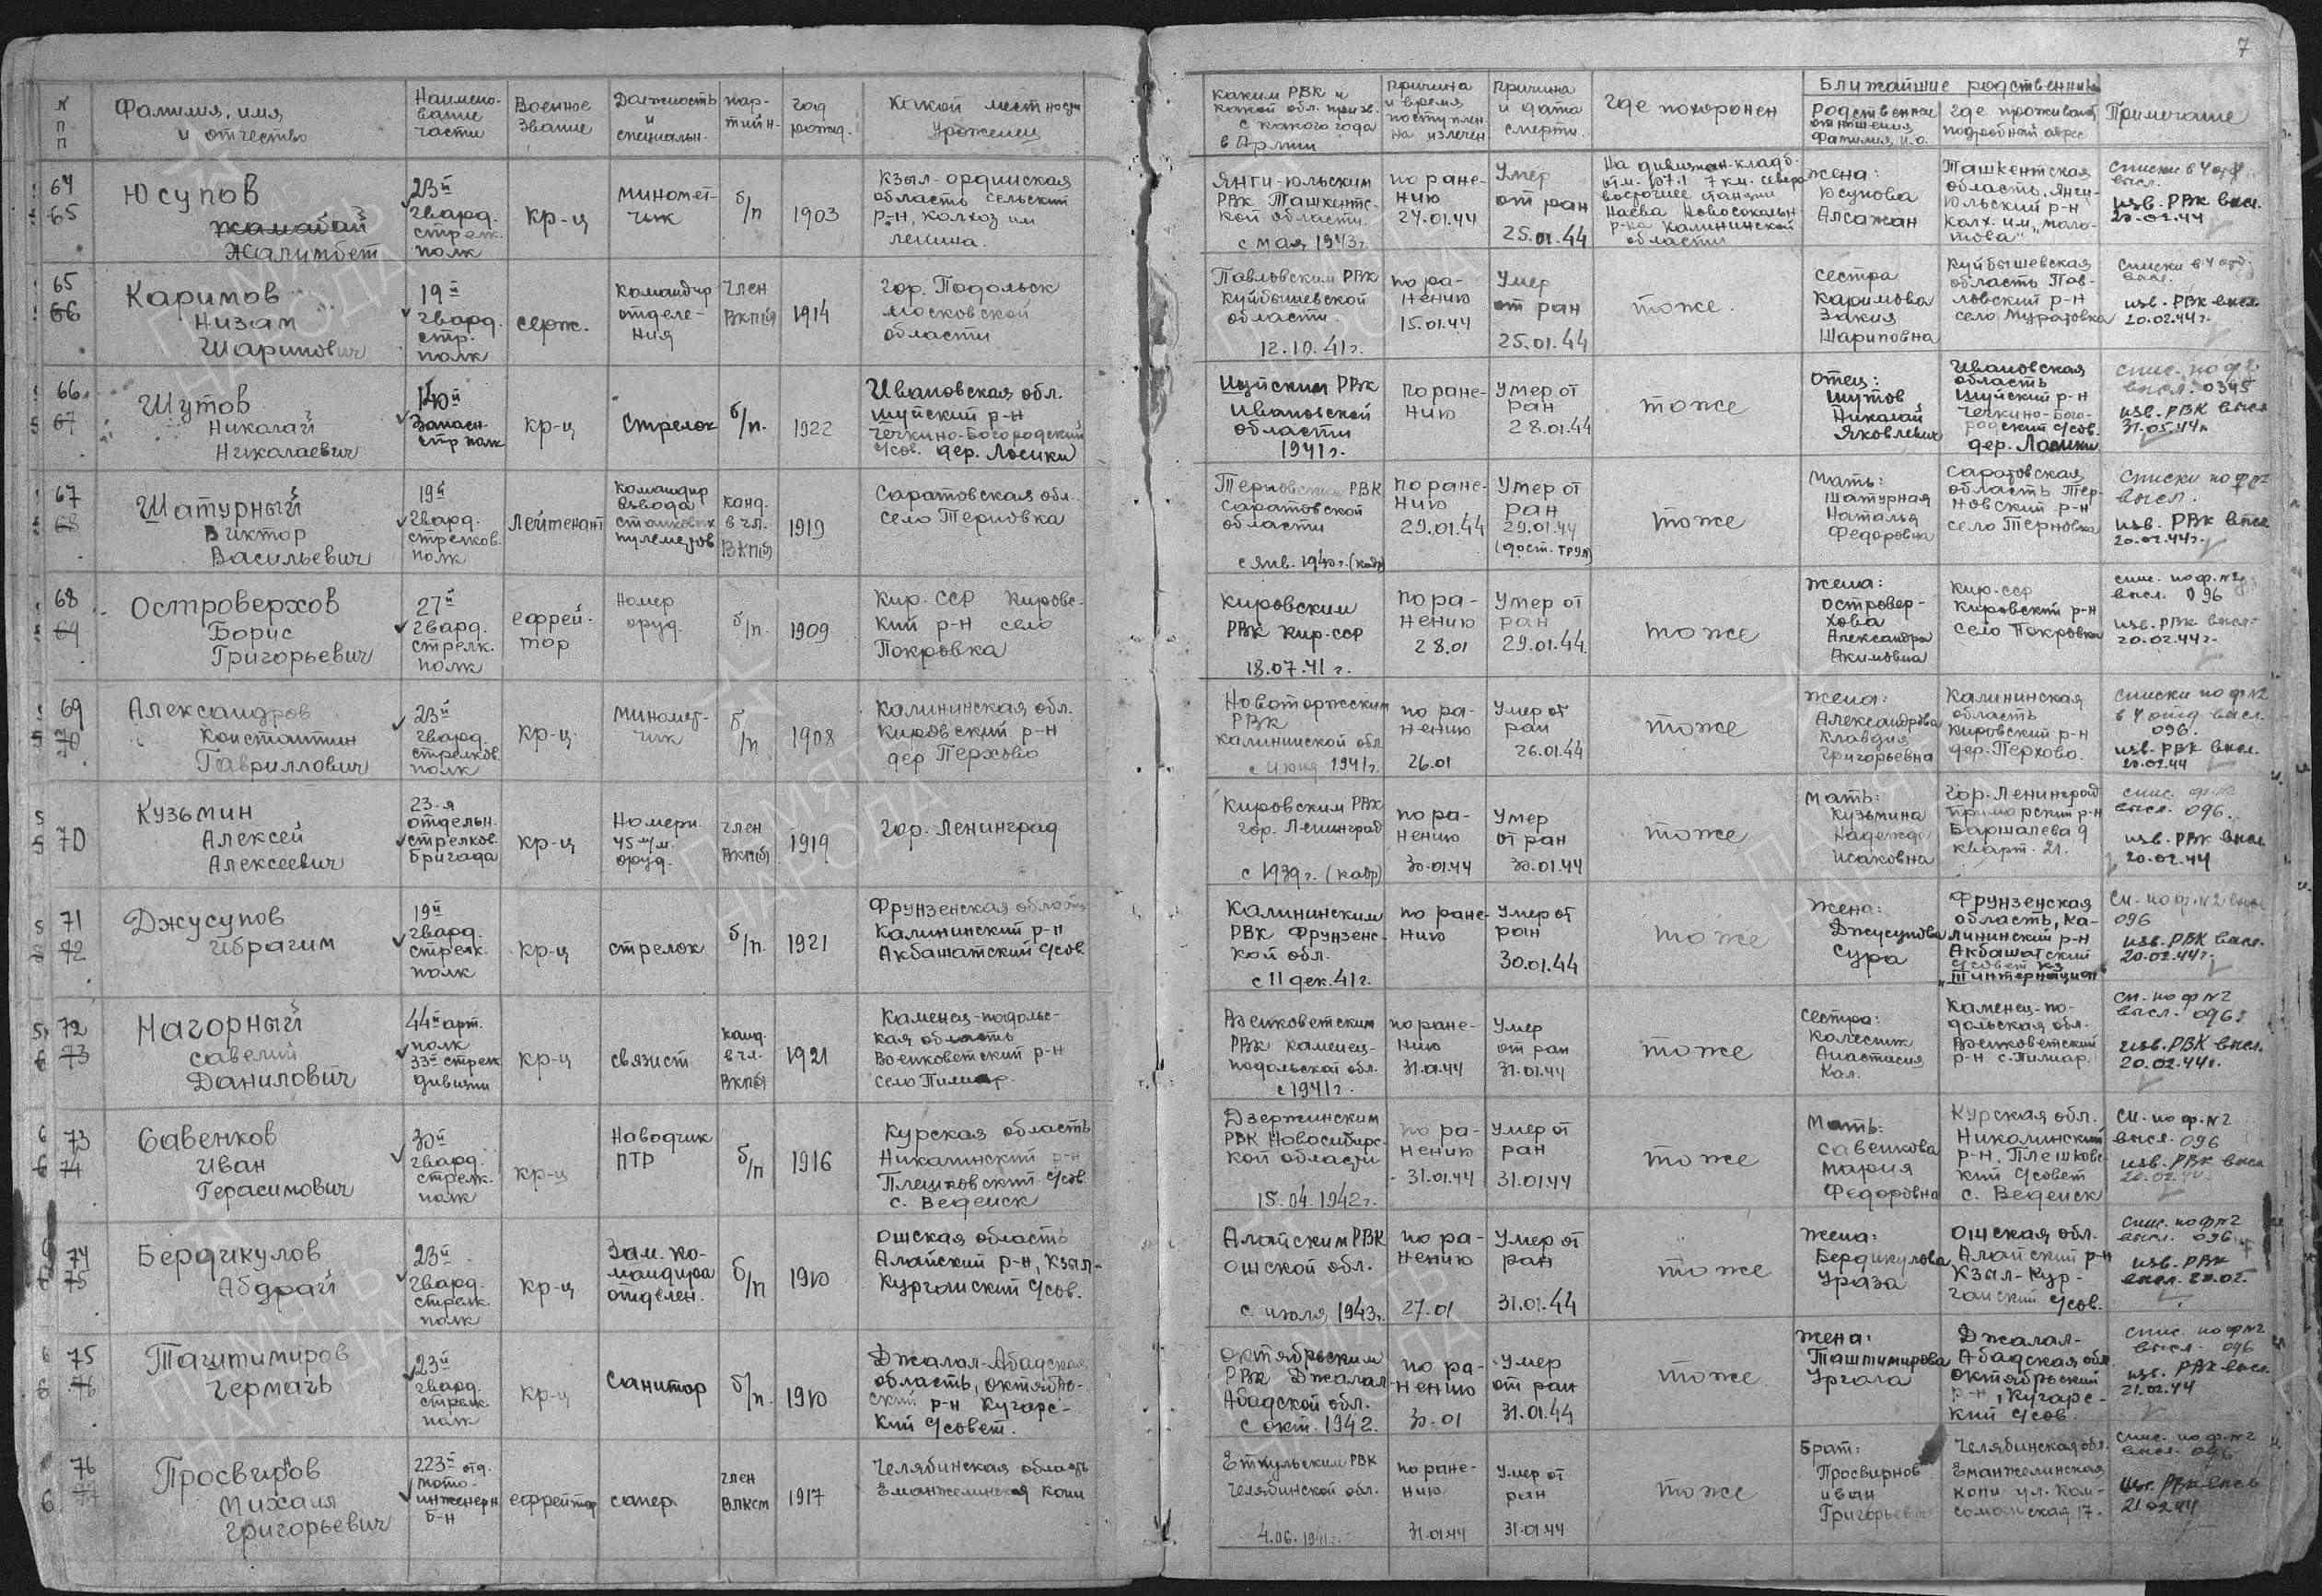 7
N п п
Фамилия, имя и отчество
Наимено-вание части
Военное звание
Должность и специальн.
пар-тийн.
год рожд.
какой местности уроженец
каким РВК и какой обл. призв. с какого года в Армии
причина и время поступлен. на излечен
причина и дата смерти.
где похоронен
Ближайшие родственники
Родственные отношения фамилия, и.о.
где проживает, подробный адрес
Примечание
64
65
Юсупов
жамабай
Жалимбет
23й
гвард.
стрелк.
полк
кр-ц
миномет-
чик
б/п
1903
Кзыл-ординская
область сельский
р-н, колхоз им
ленина.
Янги-юльским
РВК Ташкентс-
кой области
с мая 1943г.
по ране-
нию
24.01.44
Умер
от ран
25.01.44
На дивизион. кладб.
7 км. северо
восточнее станции
Новосокольн
р-на Калининской
области
жена:
Юсупова
Алсажан
Ташкентская
область, Янги-
Юльский р-н
колх. им. "моло-
това"
списки в 4 отд
высл.
изв. РВК высл.
20.02.44
65
66
Каримов
Низам
Шарипович
19й
гвард.
стр.
полк
серж.
командир
отделе-
ния
член
ВКП(б)
1914
гор. Подольск
московской
области
Павловским РВК
куйбышевской
области.
12.10.41г.
по ра-
нению
15.01.44
Умер
от ран
25.01.44
тоже.
сестра
каримова
Закия
Шариповна
Куйбышевская
область Пав-
ловский р-н
село Муратовка
списки в 4 отд.
высл.
изв. РВК высл.
20.02.44г.
66
67
Шутов
Николай
Николаевич
140й
Запасн.
стр полк
кр-ц
Стрелок
б/п.
1922
Ивановская обл.
шуйский р-н
Чечкино-Богородский
с/сов. дер. Лосики
Шуйским РВК
Ивановской
области
1941г.
по ране-
нию
Умер от
ран
28.01.44
тоже
отец:
Шутов
Николай
Яковлевич
Ивановская
область
Шуйский р-н
Чечкино-Бого-
родский с/сов.
дер. Лосики
спис. по ф2
высл. 0345
изв. РВК высл
31.05.44г
67
68
Шатурный
Виктор
Васильевич
19й
гвард.
стрелков.
полк
Лейтенант
командир
взвода
станковых
пулеметов
канд.
в чл.
ВКП(б)
1919
Саратовская обл.
село Терновка
Терновским РВК
саратовской
области
с янв. 1940г. (кадр)
по ране-
нию
29.01.44
Умер от
ран
29.01.44
(дост. труп)
тоже
мать:
Шатурная
Наталья
Федоровна
Саратовская
область Тер-
новский р-н
село Терновка
Списки по ф №2
высл.
изв. РВК высл
20.02.44г.
68
69
Островерхов
Борис
Григорьевич
27й
гвард.
стрелк.
полк
ефрей-
тор
Номер
оруд.
б/п.
1909
Кир. ССР Кировс-
кий р-н село
Покровка
Кировским
РВК Кир. сср
18.07.41г.
по ра-
нению
28.01
Умер от
ран
29.01.44.
тоже
жена:
Островер-
хова
Александра
Акимовна
Кир. сср
Кировский р-н
село Покровка
спис. по ф. №2
высл. 096
изв. РВК высл.
20.02.44г.
69
70
Александров
Константин
Гавриллович
23й
гвард.
стрелков.
полк
кр-ц
миномет-
чик
б/п
1908
Калининская обл.
Кировский р-н
дер Перхово
Новоторжским
РВК
калининской обл
с июня 1941г.
по ра-
нению
26.01
Умер от
ран
26.01.44
тоже
жена:
Александрова
Клавдия
Григорьевна
Калининская
область
Кировский р-н
дер. Перхово.
списки по ф №2
в 4 отд высл.
096.
изв. РВК высл.
20.02.44
70
Кузьмин
Алексей
Алексеевич
23-я
отдельн.
стрелков.
бригада
кр-ц
Номерн.
45 м/м.
оруд.
член
ВКП(б)
1919
гор. Ленинград
Кировским РВК
гор. Ленинград
с 1939г. (кадр)
по ра-
нению
30.01.44
Умер
от ран
30.01.44
тоже
мать:
Кузьмина
Надежда
Исаковна
гор. Ленинград
приморский р-н
Бармалева 9
кварт. 21.
спис. ф. №2
высл. 096.
изв. РВК высл.
20.02.44
71
72
Джусупов
Ибрагим
19й
гвард.
стрелк.
полк
кр-ц
стрелок
б/п.
1921
Фрунзенская область
Калининский р-н
Акбашатский с/сов
Калининским
РВК Фрунзенс-
кой обл.
с 11 дек. 41г.
по ране-
нию
Умер от
ран
30.01.44
тоже
Жена:
Джусупова
Сура
Фрунзенская
область, Ка-
лининский р-н
Акбашатский
с/совет кз
"III интернацион"
Сп. по ф. №2 высл
096
изв. РВК высл.
20.02.44г.
72
73
Нагорный
Савелий
Данилович
44й арт.
полк
33й стрелк
дивизии
кр-ц
связист
канд.
в чл.
ВКП(б)
1921
Каменец-подольс-
кая область
Военковетский р-н
село Пилипр.
РВК каменец-
подольской обл.
с 1941г.
по ране-
нию
31.01.44
Умер
от ран
31.01.44
тоже
сестра:
Колесник
Анастасия
Кал.
Каменец-по-
дольская обл.
р-н с. Пилипр.
Сп. по ф №2
высл. 096.
изв. РВК высл.
20.02.44г.
73
74
Савенков
Иван
Герасимович
30й
гвард.
стрелк.
полк
кр-ц
Наводчик
ПТР
б/п
1916
Курская область
Никалинский р-н
Плешковский с/сов.
с. Веденск
Дзержинским
РВК Новосибирс-
кой области
15.04.1942г.
по ра-
нению
31.01.44
Умер от
ран
31.01.44
тоже
Мать:
савенкова
мария
Федоровна
Курская обл.
Никалинский
р-н, Плешковс-
кий с/совет
с. Веденск
Сп. по ф. №2
высл. 096
изв. РВК высл
74
75
Бердикулов
Абдрай
23й
гвард.
стрелк.
полк
кр-ц
Зам. ко-
мандира
отделен.
б/п
1910
ошская область
Алайский р-н, Кзыл-
Курганский с/сов.
Алайским РВК
ошской обл.
с июля 1943г.
по ра-
нению
27.01
Умер от
ран
31.01.44
тоже
жена:
Бердикулова
Ураза
Ошская обл.
Алайский р-н
Кзыл-Кур-
ганский с/сов.
спис. по ф №2
высл. 096
изв. РВК
высл. 20.02.
75
76
Таштимиров
Чермачь
23й
гвард.
стрелк.
полк
кр-ц
Санитар
б/п.
1910
Джалал-Абадская
область, октябрь-
ский р-н Кугарс-
кий с/совет.
октябрьским
РВК Джалал-
Абадской обл.
с окт. 1942.
по ра-
нению
30.01
Умер
от ран
31.01.44
тоже
жена:
Таштимирова
Ургала
Джалал-
Абадская обл.
октябрьский
р-н, Кугарс-
кий с/сов.
спис. по ф №2
высл. 096
изв. РВК высл.
21.02.44
76
77
Просвирнов
Михаил
Григорьевич
223й отд.
мото-
инженерн
б-н
ефрейтор
сапер
член
ВЛКСМ
1917
Челябинская область
Еманжелинская копи
Еткульским РВК
Челябинской обл.
4.06.1941г.
по ране-
нию
31.01.44
Умер от
ран
31.01.44
тоже
Брат:
Просвирнов
иван
Григорьевич
Челябинская обл.
Еманжелинская
копи ул. Ком-
сомольская 17.
спис. по ф. №2
высл. 096
изв. РВК высл
21.02.44
ПАМЯТЬ
НАРОДА